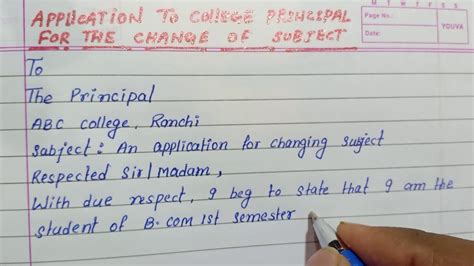 APPLICATION TO COLLEGE PRINCIPAL
FOR THE CHANGE OF SUBJECT
M T W T F S S
Page No.:
Date:
YOUVA
To
The Principal
ABC college, Ranchi
Subject: An application for changing subject
Respected Sir/Madam,
With due respect, I beg to state that I am the
student of B.com 1st semester